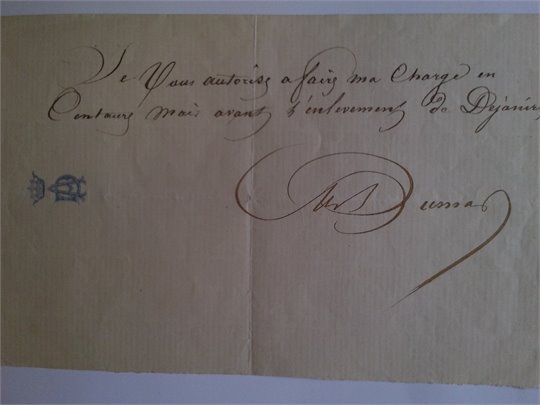 Je Vous autorise a faire ma Charge en
Centaure mais avant l'enlevement de Dejanire
Alex Dumas